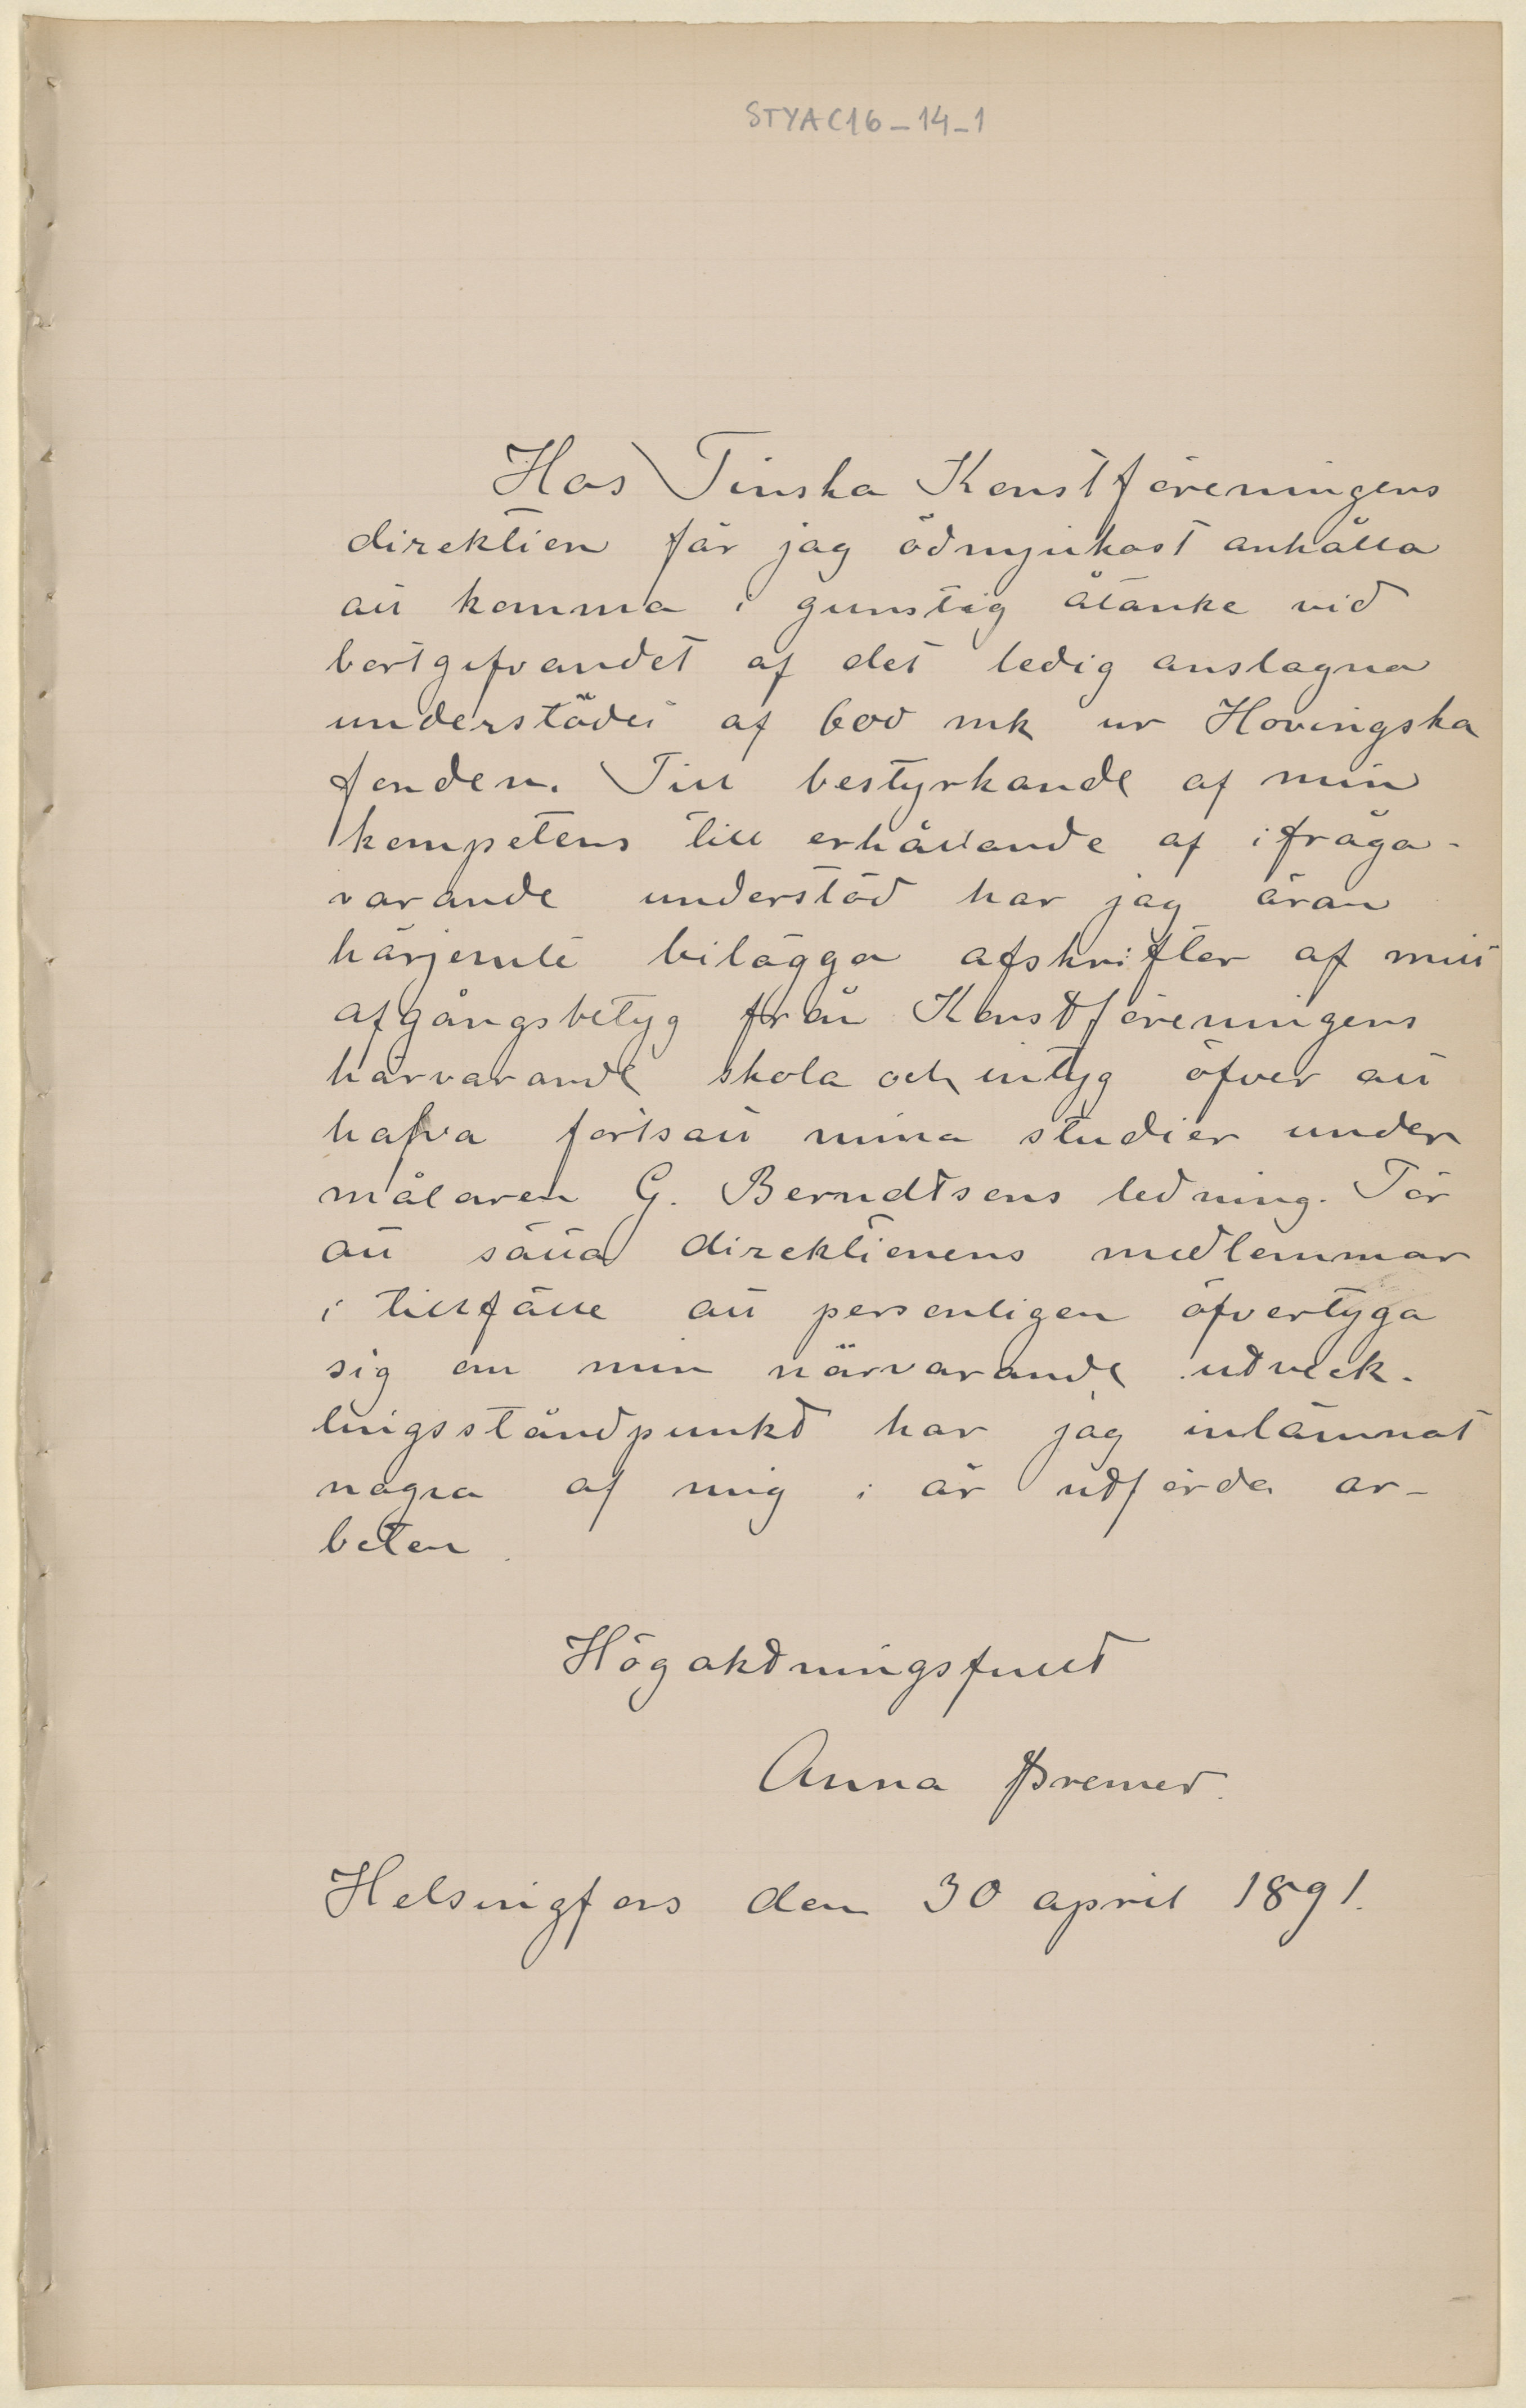 STYAC16_14_1
Hos Finska Konstföreningens
direktion får jag ödmjukast anhålla
att komma i gunstig åtanke vid
bortgifvandet af det ledig anslagna
understödet af 600 mk ur Hovingska
fonden. Till bestyrkande af min
kompetens till erhållande af ifråga-
varande understöd har jag äran
härjemte bilägga afskrifter af mitt
afgångsbetyg från Konstföreningens
härvarande skola och intyg öfver att
hafva fortsatt mina studier under
målaren G. Berndtsons ledning. För
att sätta direktionens medlemmar
i tillfälle att personligen öfvertyga
sig om min närvarande utveck-
lingsståndpunkt har jag inlämnat
några af mig i år utförda ar-
beten.
Högaktningsfullt
Anna Bremer.
Helsingfors den 30 april 1891.